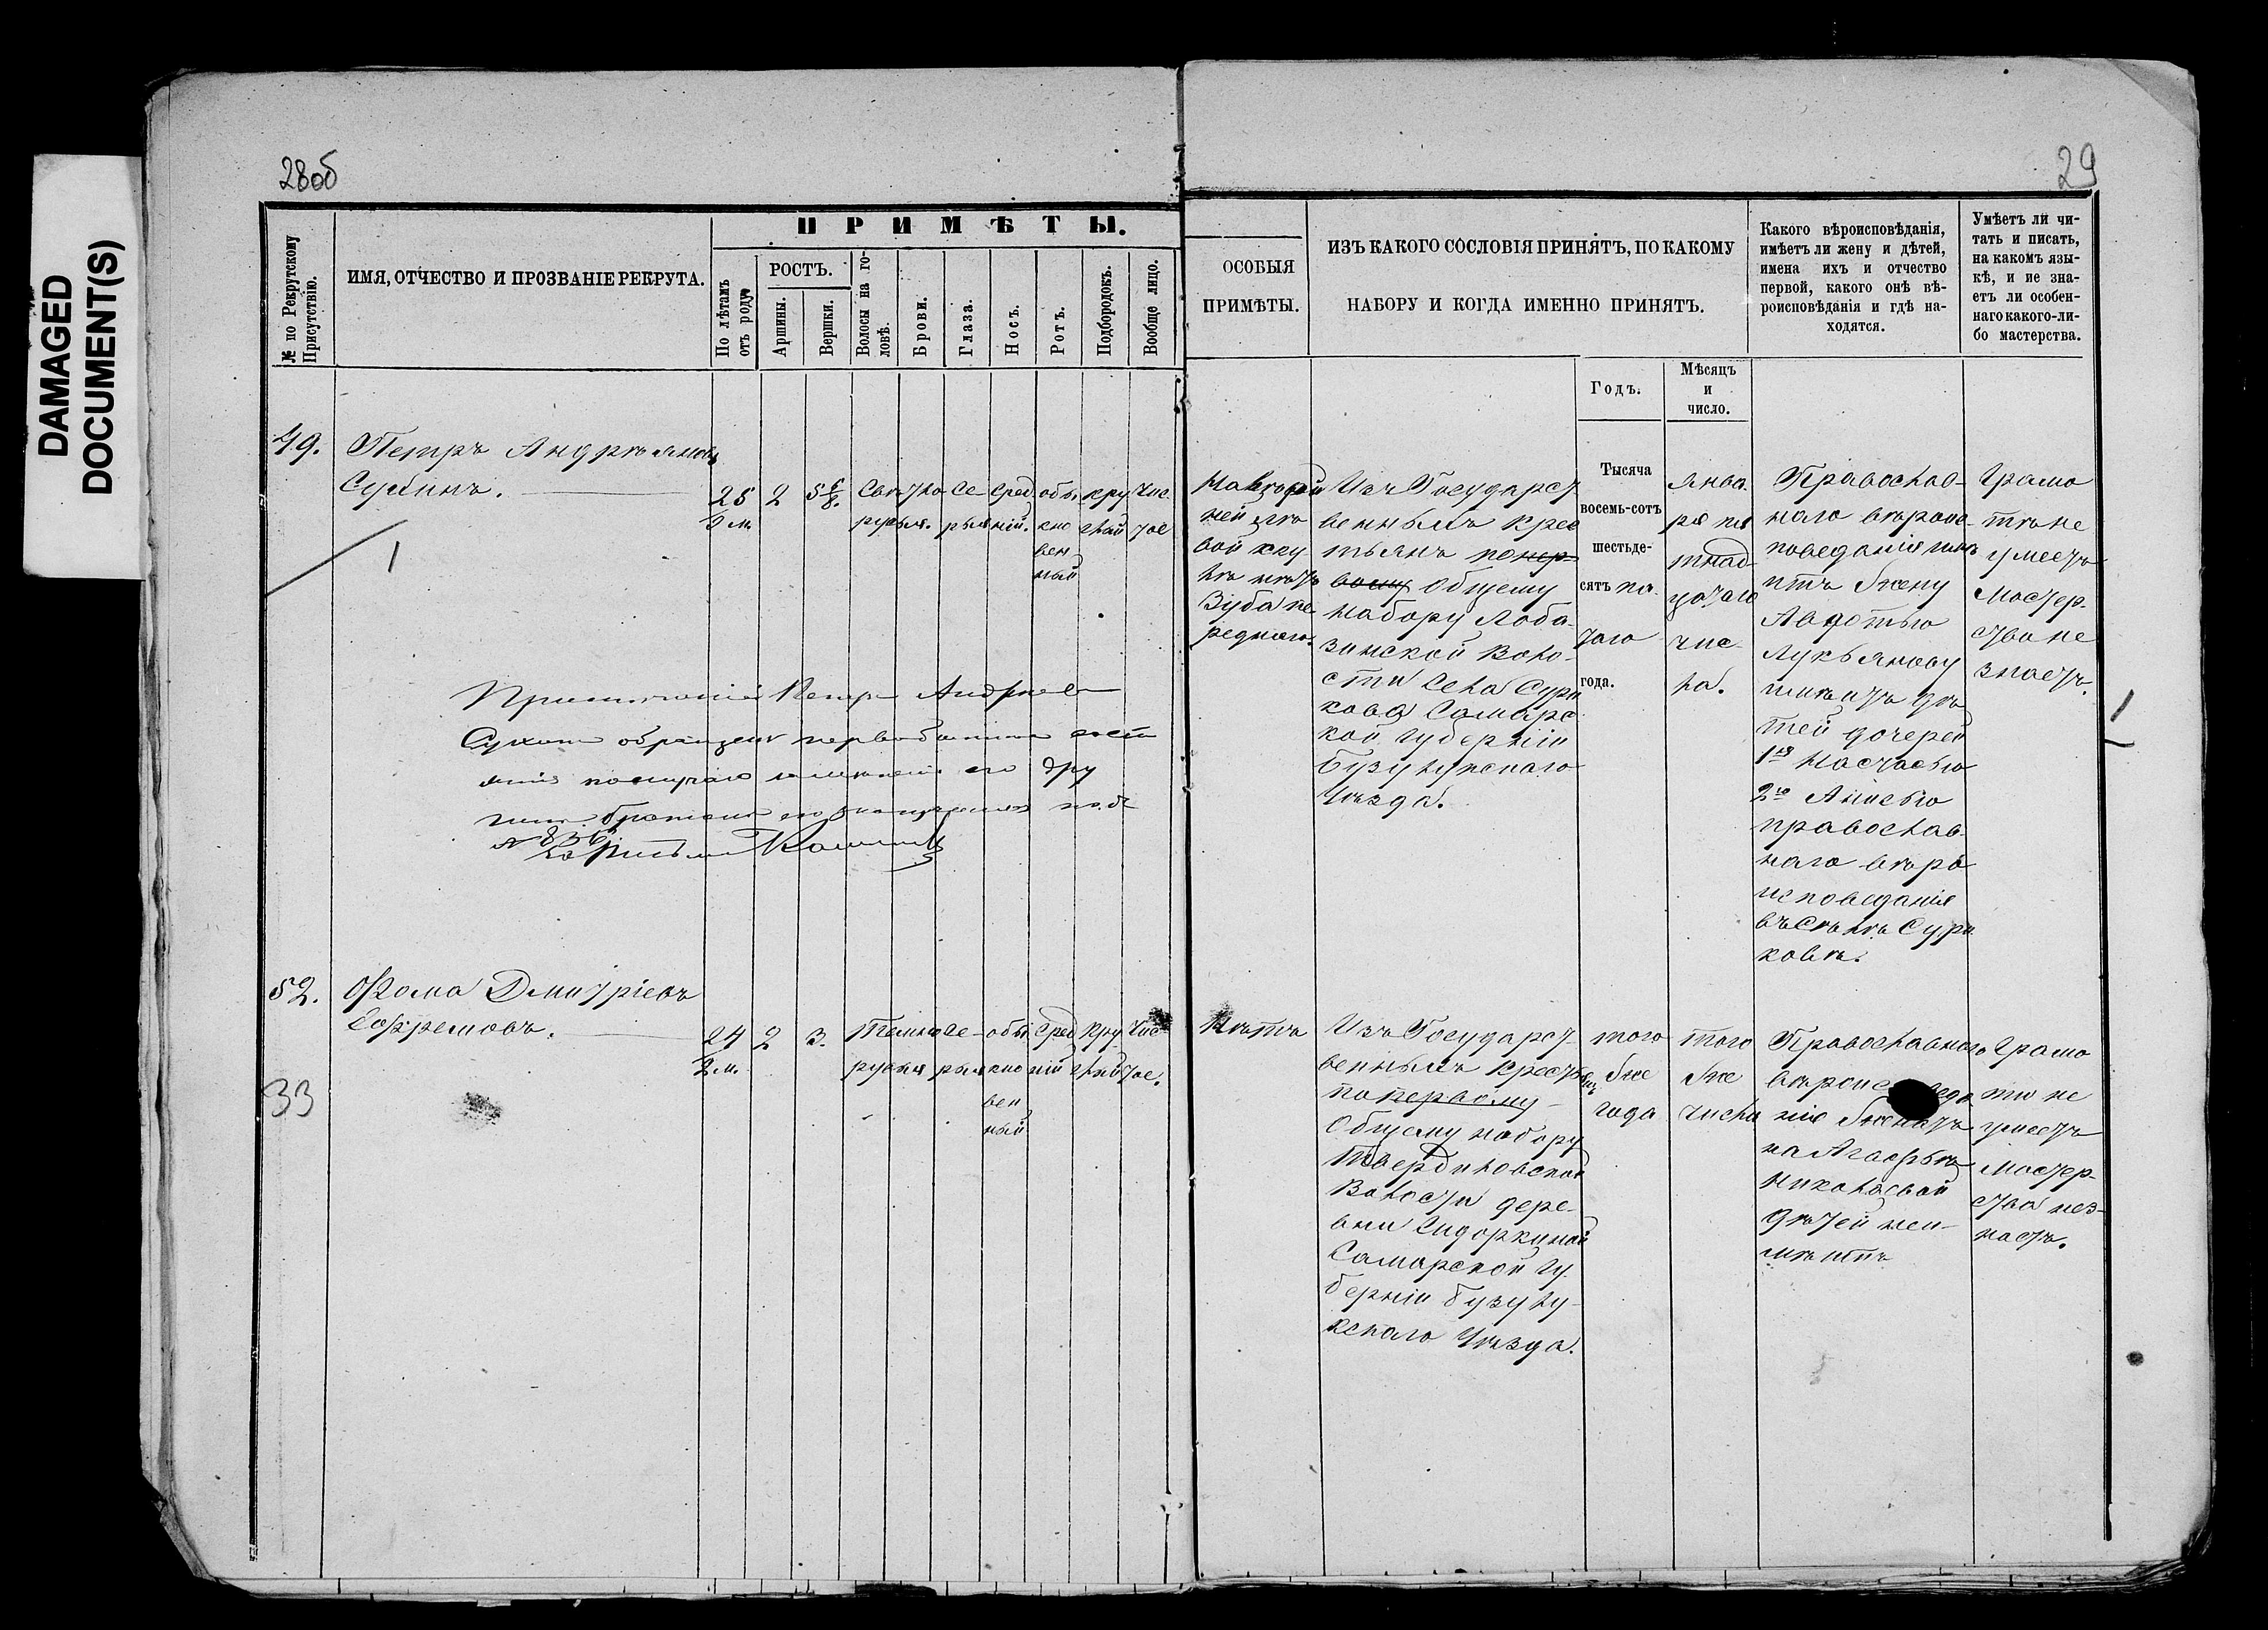 DAMAGED
DOCUMENT(S)
28об
29
№ по Рекрутскому
Присутствію.
ИМЯ, ОТЧЕСТВО И ПРОЗВАНІЕ РЕКРУТА.
ПРИМѢТЫ.
По лѣтамъ
отъ роду.
РОСТЪ.
Аршины.
Вершки.
Волосы на го-
ловѣ.
Брови.
Глаза.
Носъ.
Ротъ.
Подбородокъ.
Вообще лицо.
ОСОБЫЯ
ПРИМѢТЫ.
ИЗЪ КАКОГО СОСЛОВІЯ ПРИНЯТЪ, ПО КАКОМУ
НАБОРУ И КОГДА ИМЕННО ПРИНЯТЪ.
Годъ.
Мѣсяцъ
и
число.
Какого вѣроисповѣданія,
имѣетъ ли жену и дѣтей,
имена ихъ и отчество
первой, какого онѣ вѣ-
роисповѣданія и гдѣ на-
ходятся.
Умѣетъ ли чи-
тать и писать,
на какомъ язы-
кѣ, и не зна-
етъ ли особен-
наго какого-ли-
бо мастерства.
49.
Петръ Андрѣяновъ
25
2 м.
2
Свѣтло
русыя.
Се-
рыя
Сред
ній.
обы
кно
вен
ный
кру
глый
Чис
тое
ней лѣ
вой ску
лѣ нѣтъ
Зуба пе
редняго.
Изъ Государст
венныхъ крес
тьянъ по пер-
вому Общему
набору Лоба-
зинской Воло-
сти Села Сури
кова Самарс
кой Губерніи
Бузулукскаго
Уѣзда.
Тысяча
восемь-сотъ
шестьде-
сятъ пя-
таго
года.
Янва-
ря пя
тнад
цатаго
чис-
ла.
Православ-
наго вѣроис-
поведанія имѣ
итъ жену
Авдотью
Лукьянову
имѣитъ дѣ
тей дочерей
1ю Настасью
2ю Анисью
православ-
наго вѣро
исповеданія
въ Сѣлѣ Сури
ковѣ.
Грамо
тѣ не
умеетъ
Мастер-
ства не
знаетъ.
Петр
№ 836
52.
33
Фома Дмитріевъ
Ефремовъ.
24
2 м.
2
3.
Темно
русыя
Се-
рыя
обы
кно
вен
ный
Сред
ній
Кру-
глый
Чис-
тое.
Нѣтъ
Изъ Государст-
венныхъ Крестьянъ
по первому
Общему набору
Твердиловской
Волости дере-
вни Сидоркиной
Самарской Гу
берніи Бузулу-
кскаго Уѣзда.
того
же
года
того
же
числа
Православнаго
вѣроис веда
нія женатъ
на Агафьѣ
Николаевой
дѣтей неи-
мѣитъ
Грамо
те не
умеетъ
Мастер-
ства нез-
наетъ.